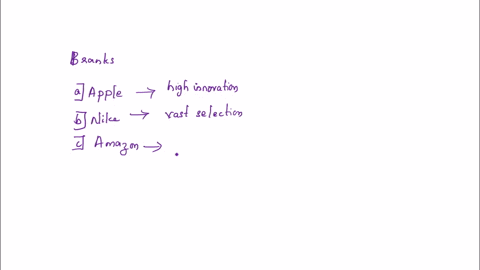 Branks
a] Apple → high innovation
b] Nike → vast selection
c] Amazon →